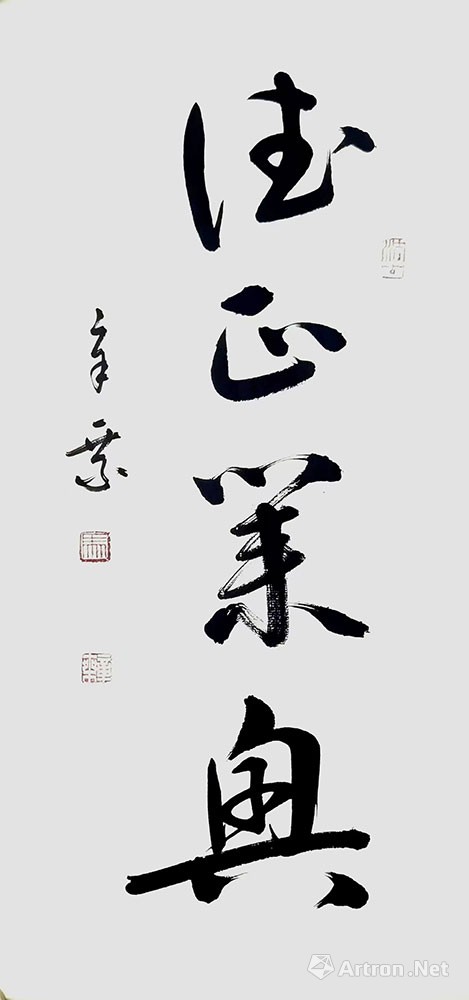 德正業興
Artron.Net